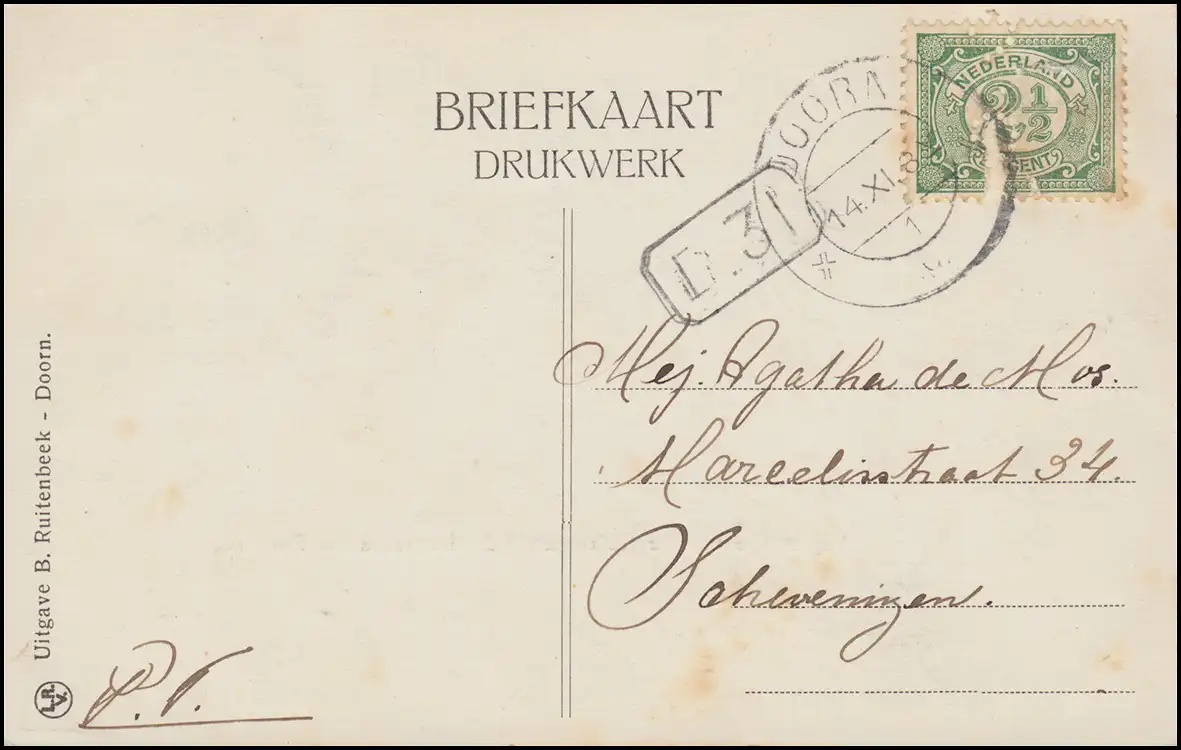 BRIEFKAART
DRUKWERK
NEDERLAND
2½
CENT
DOORN
14.XI.8
1
D.31
Mej. Agatha de Mos.
Marcelisstraat 34.
Scheveningen.
Uitgave B. Ruitenbeek - Doorn.
L.R.
V.
P.V.